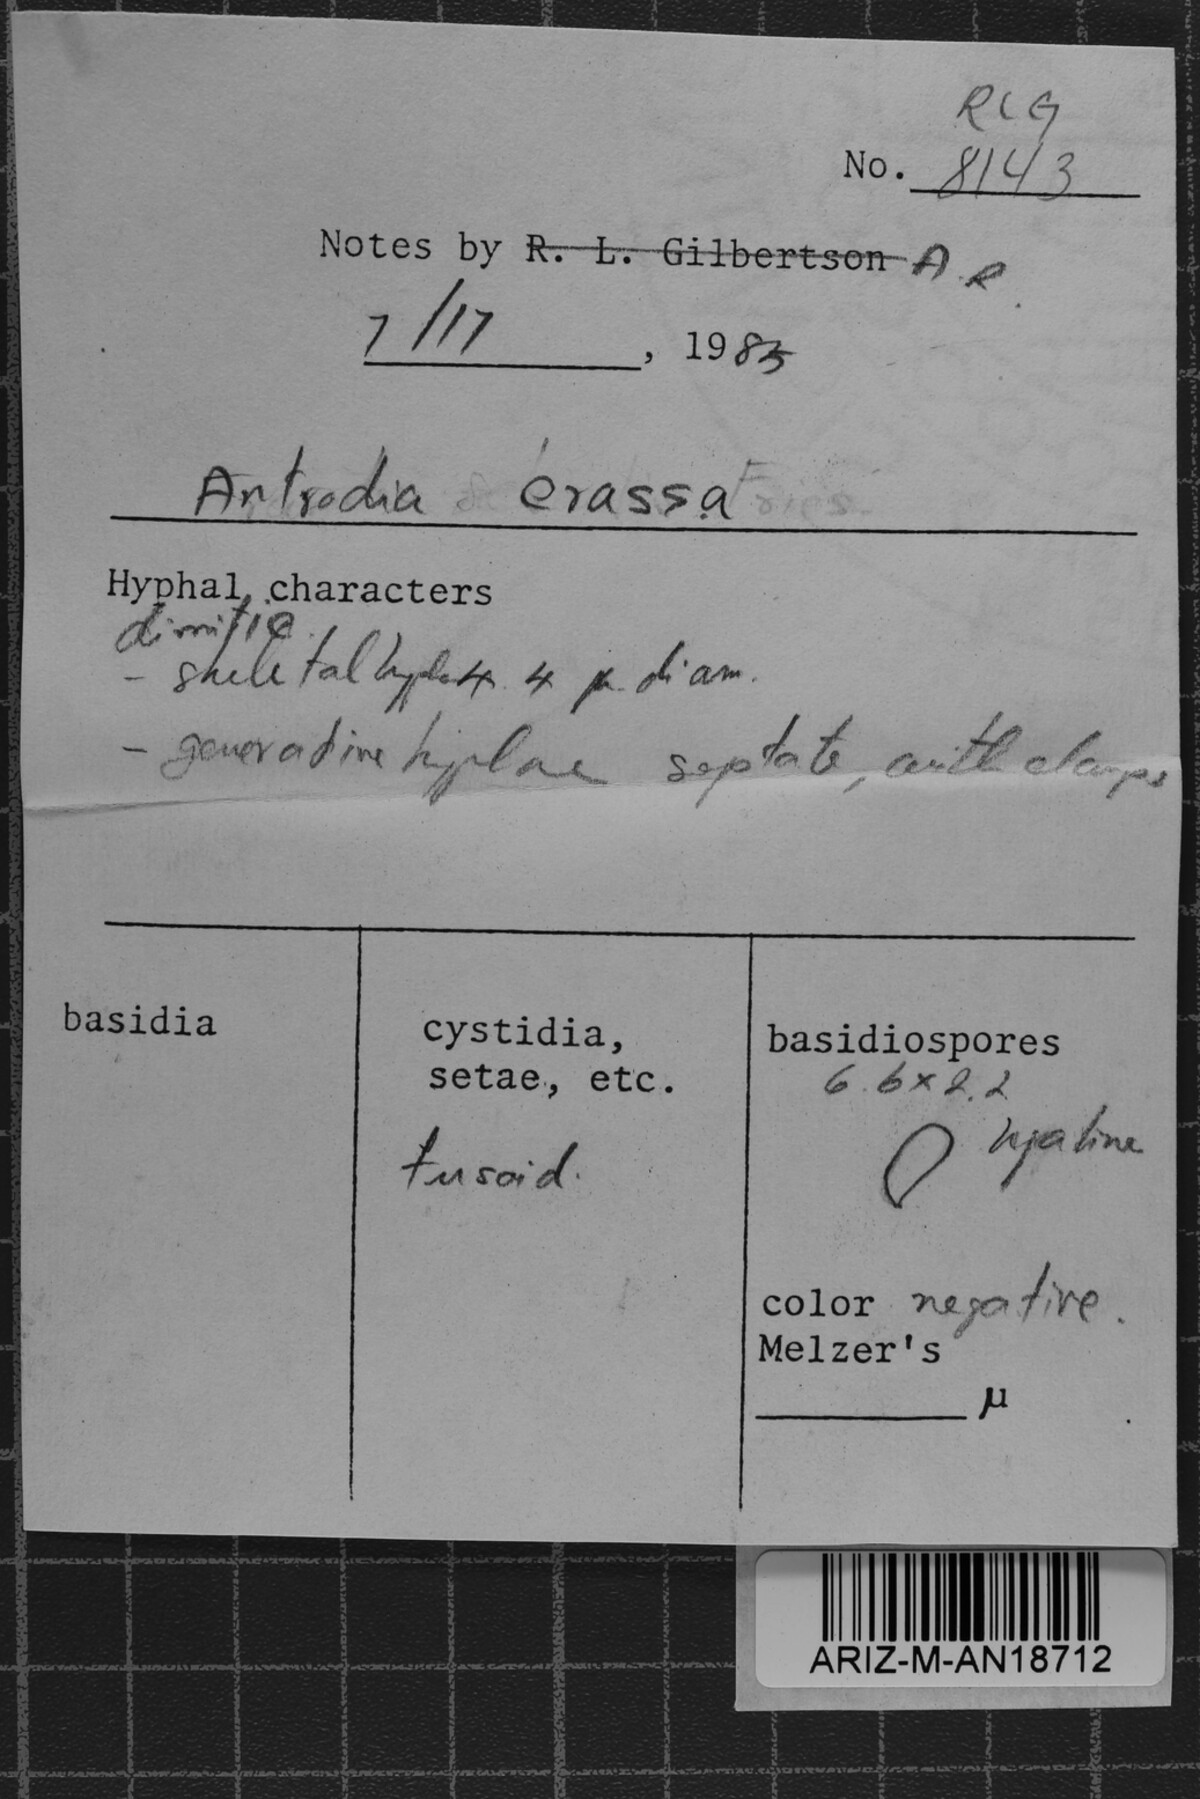 RLG
No. 8143
Notes by R. L. Gilbertson A R.
7/17, 1985
Antrodia crassa
Hyphal characters
dimitic.
- skeletal hyphae 4 µ diam.
- generative hyphae septate, with clamps
basidia
cystidia,
setae, etc.
fusoid.
basidiospores
6.6 x 2.2
hyaline
color negative.
Melzer's
µ
ARIZ-M-AN18712